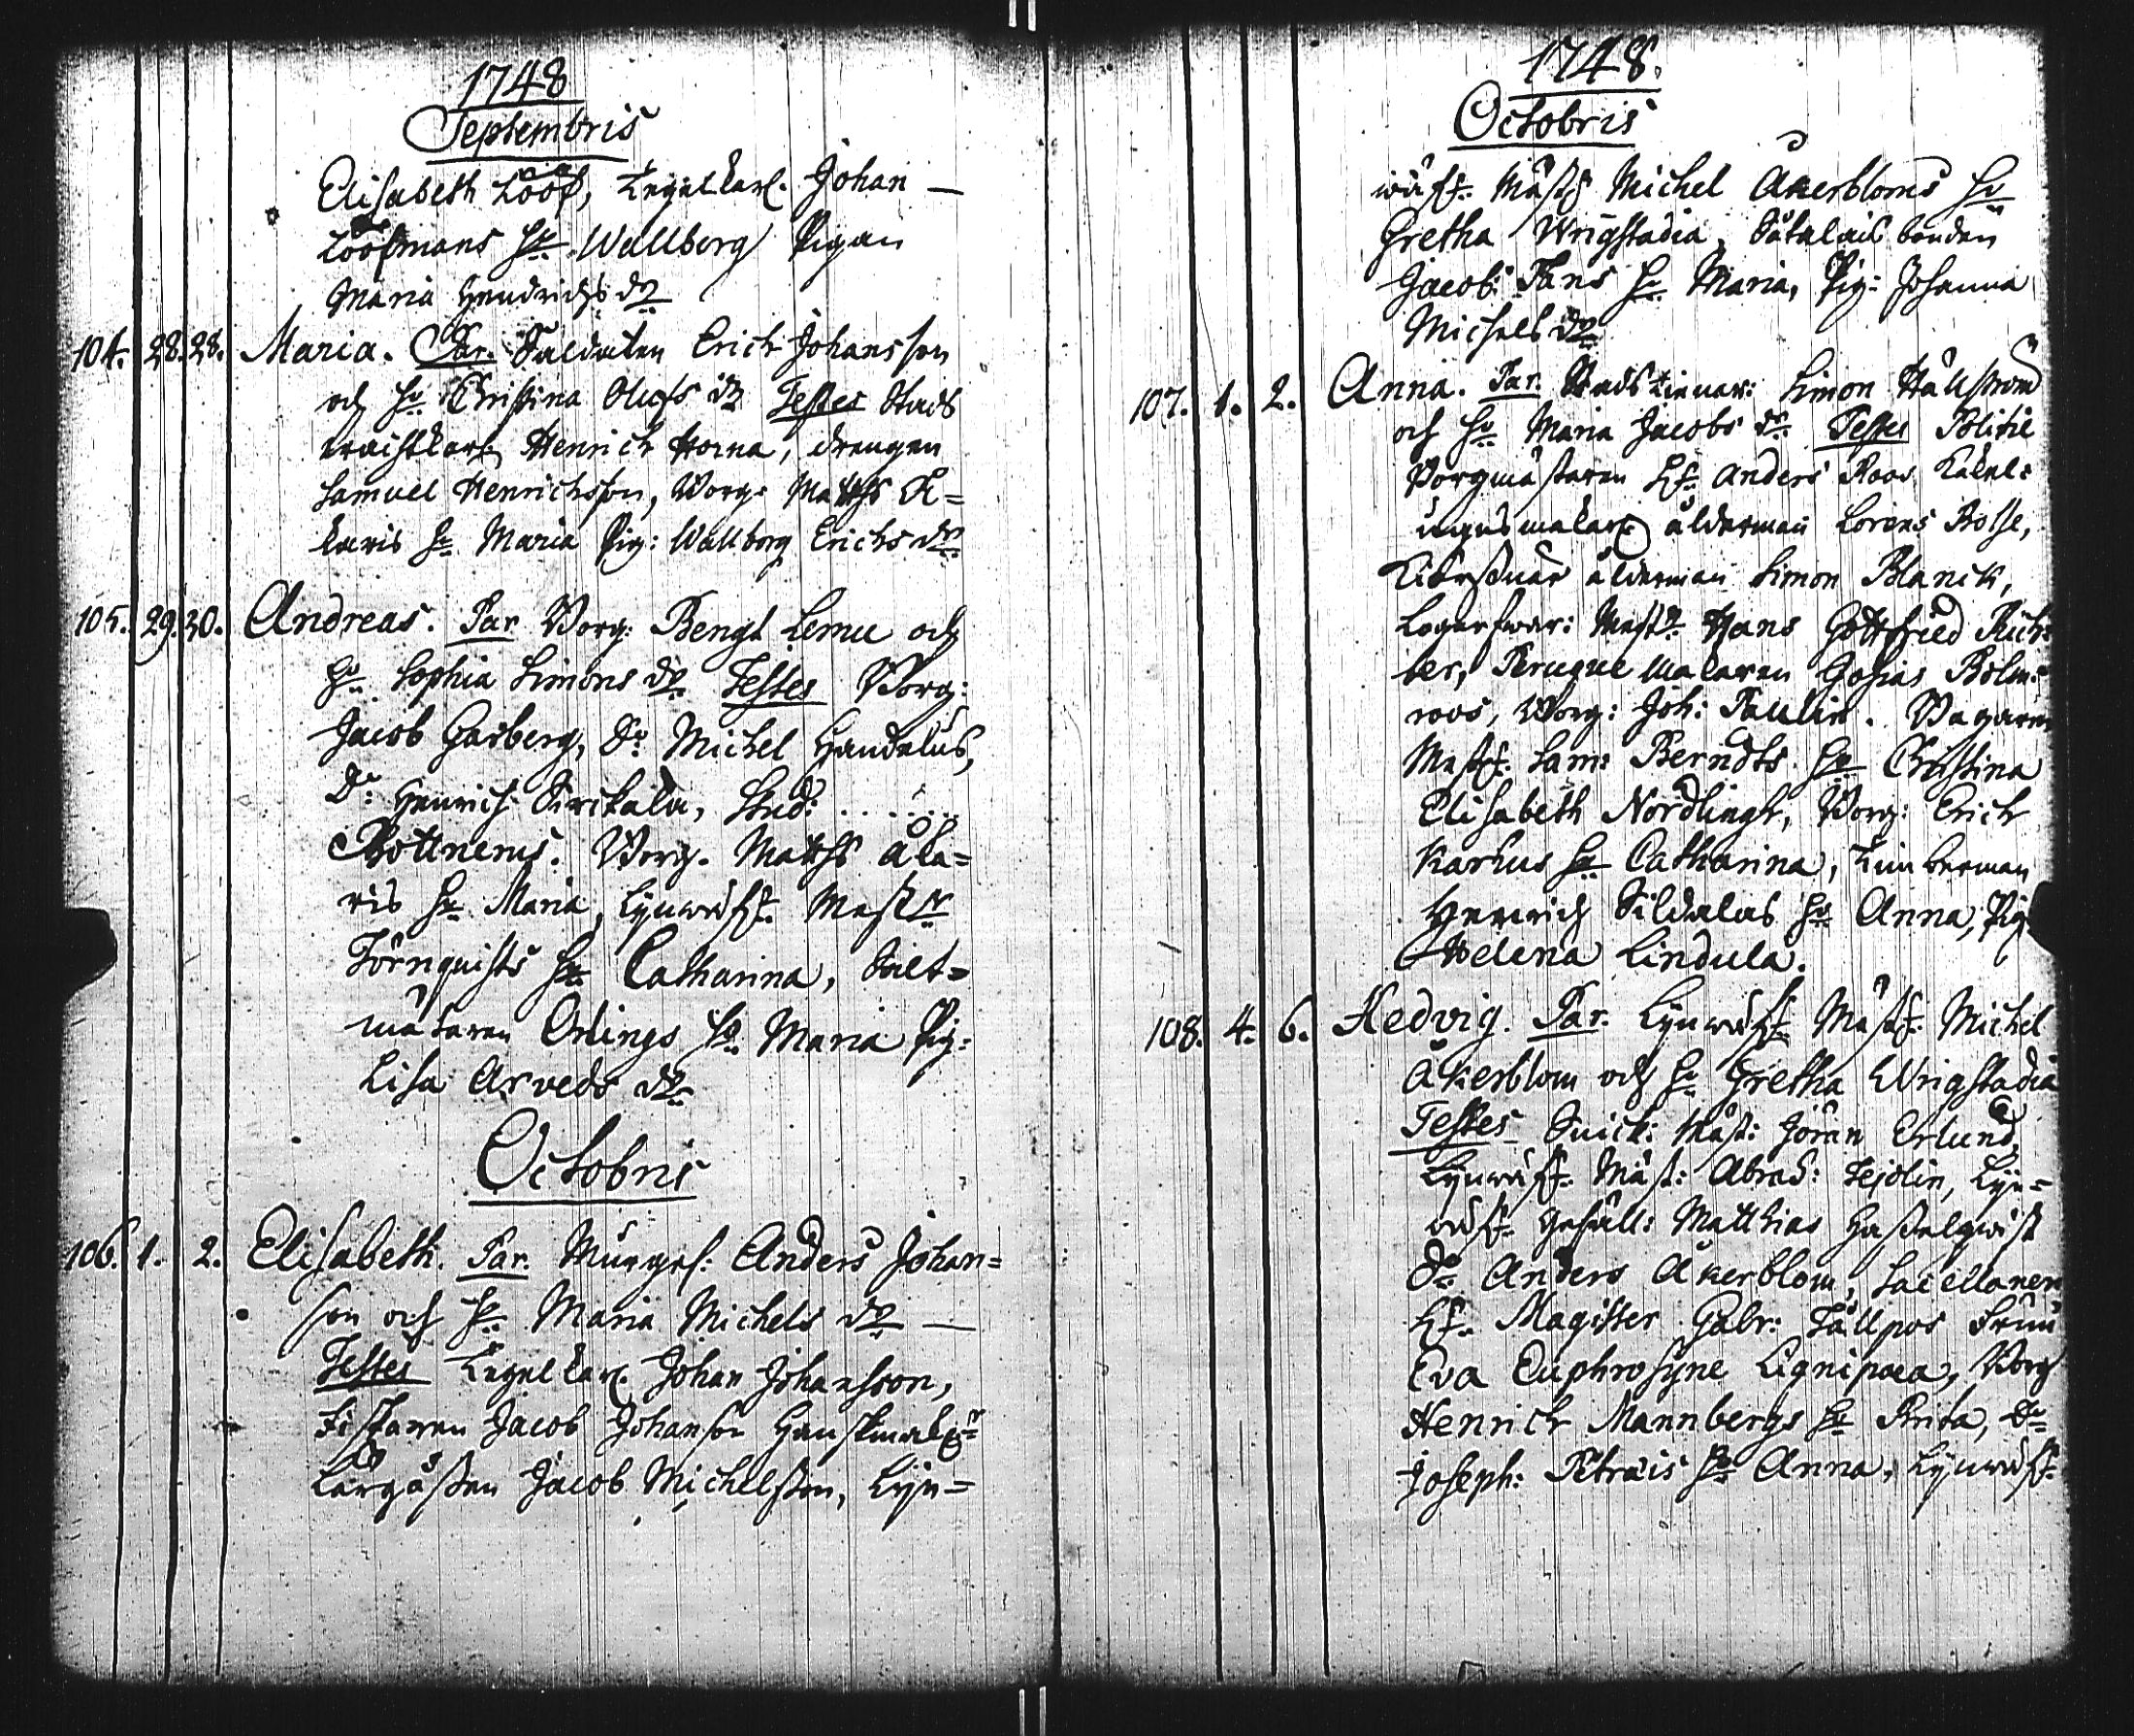 1748
Septembris
Elisabeth Lööf, Tegelkarl. Johan —
Lööfmans H:u Wallborg Pigan
Maria Hendrichs d:r
104. 28. 28. Maria. Par. Saldaten Erich Johansson
och H:u Christina Olofs d:r Testes Stads
wachtkarl Henrich Horna, drengen
Samuel Henrichsson, Borg: Matths A=
laris H:u Maria Pig: Wallborg Erichs d:r
105. 29. 30. Andreas. Par Borg: Bengt Lemu och
H:u Sophia Simons d:r Testes Borg:
Jacob Garberg, D:o Michel Handelus,
D:o Henrich Sirckala, Stud: . . . . . .
Bottnerus. Borg. Matths Ala=
ris H:u Maria, Lijnwäf: Mest:r
Törnquists H:u Catharina, Salt=
mätaren Orlings H:u Maria Pig:
Lisa Arveds d:r
Octobris
106. 1. 2. Elisabeth. Par. Murges: Anders Johan=
son och H:u Maria Michels d:r —
Testes Tegelkarl. Johan Johansson,
Fiskaren Jacob Johanson
Lärgåssen Jacob Michelsson, Lijn=
1748.
Octobris
wäf: Mäst: Michel Åkerbloms H:u
Gretha Wrigstadia, bonden
Jacob: Tans H:u Maria, Pig: Johanna
Michels d:r
107. 1. 2. Anna. Par. Stads tienar: Simon Hällström
och H:u Maria Jacobs d:r Testes Politie
Borgmästaren H:r Anders Roos Kakel=
ungnsmakar: ålderman Lorens Bosse,
ålderman Simon Blanck,
Logarfwar: Mest:r Hans Gottfried
ber, Peruque makaren Gosias Bolm=
roos, Borg: Joh: Paulin. Bagaren
Mest: Sam: Berndts H:u Christina
Elisabeth Nordlingh, Borg: Erich
Karhus H:u Catharina, Timberman
Henrich Sildalas H:u Anna, Pig
Helena Lindula.
108. 4. 6. Hedvig. Par. Lijnwäf: Mäst: Michel
Åkerblom och H:u Gretha Wrigstadia
Testes Snick: Mäst: Jöran Erlund,
Lijnwäf: Mäst: Abrah: Tejolin, Lijn=
wäf: Gesäll: Matthias Hasselqwist
D:o Anders Åkerblom, Sacellanen
H:r Magister Gabr: Tällpos Fruu
Eva Euphrosyne Lignipæa, Borg
Henrich Mannbergs H:u Brita, D:o
Joseph: Petræis H:u Anna, Lijnwäf: